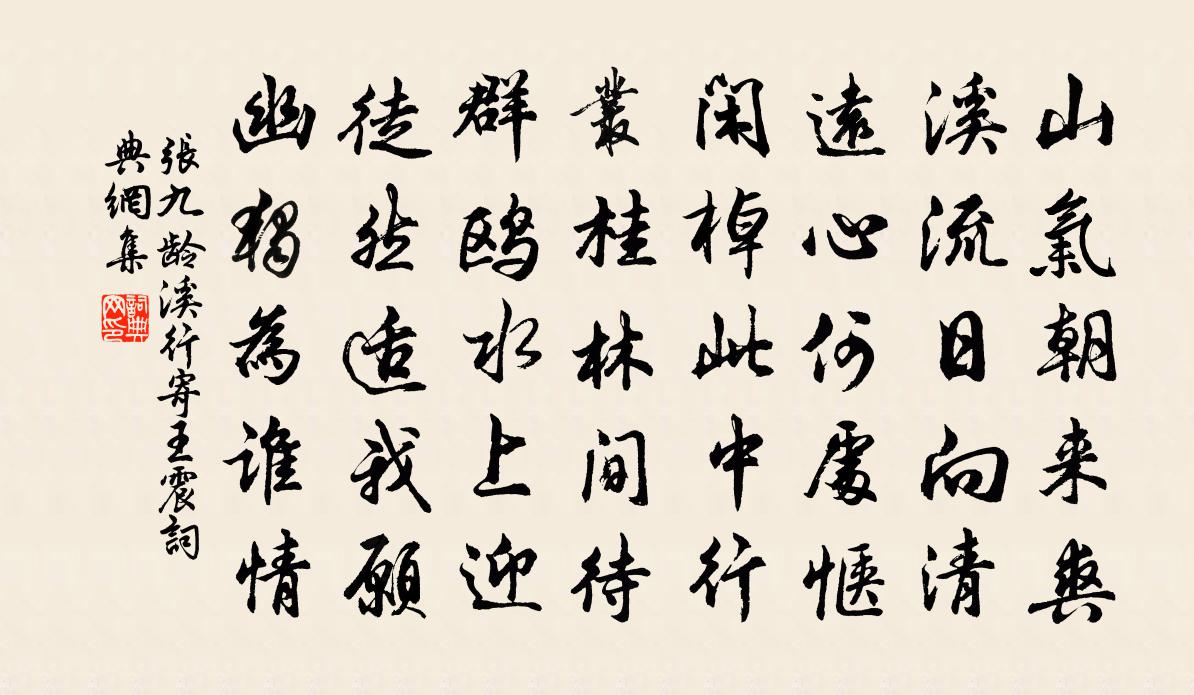 山氣朝来爽
溪流日向清
遠心何處愜
閑棹此中行
叢桂林間待
群鷗水上迎
徒然适我願
幽獨為誰情
張九龄溪行寄王震詞
典網集
詞典
网印